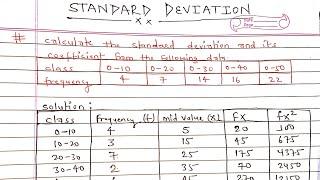 STANDARD DEVIATION
# calculate the standard deviation and its
coefficient from the following data.
class 0-10 0-20 0-30 0-40 0-50
frequency 4 7 14 16 22
solution:
class frequency (f) mid value (x) fx fx²
0-10 4 5 20 100
10-20 3 15 45 675
20-30 7 25 175 4375
30-40 2 35 70 2450
45 270 12150